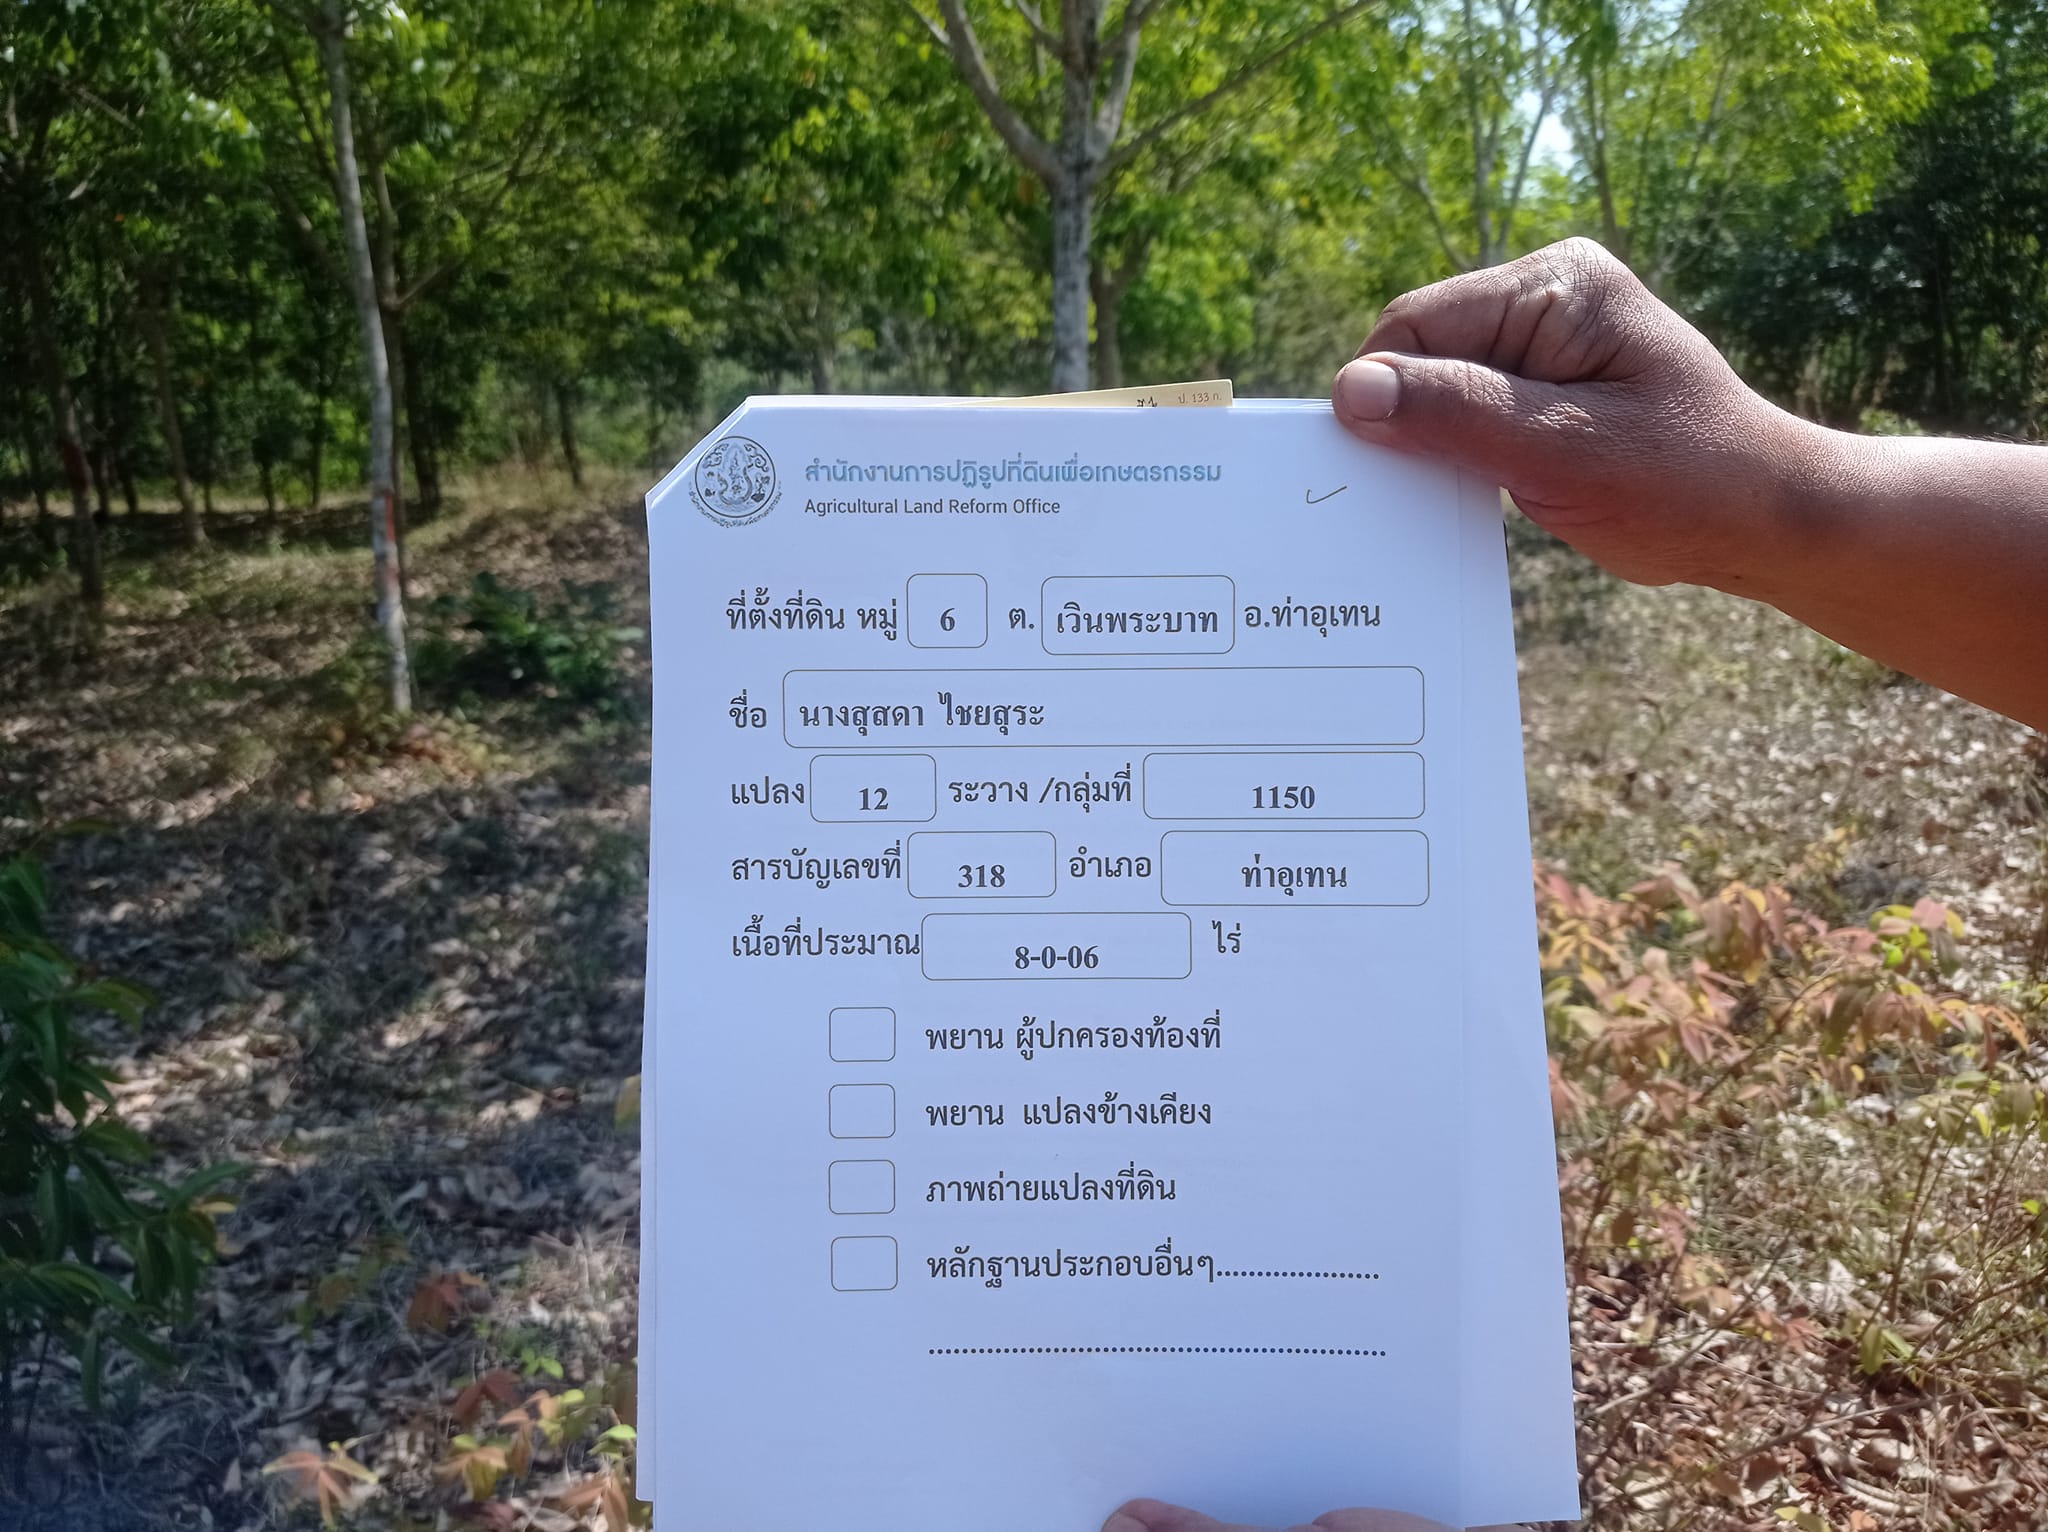 ป. 133 ก.
สำนักงานการปฏิรูปที่ดินเพื่อเกษตรกรรม
Agricultural Land Reform Office
ที่ตั้งที่ดิน หมู่ 6 ต. เวินพระบาท อ.ท่าอุเทน
ชื่อ นางสุสดา ไชยสุระ
แปลง 12 ระวาง /กลุ่มที่ 1150
สารบัญเลขที่ 318 อำเภอ ท่าอุเทน
เนื้อที่ประมาณ 8-0-06 ไร่
พยาน ผู้ปกครองท้องที่
พยาน แปลงข้างเคียง
ภาพถ่ายแปลงที่ดิน
หลักฐานประกอบอื่นๆ....................
........................................................